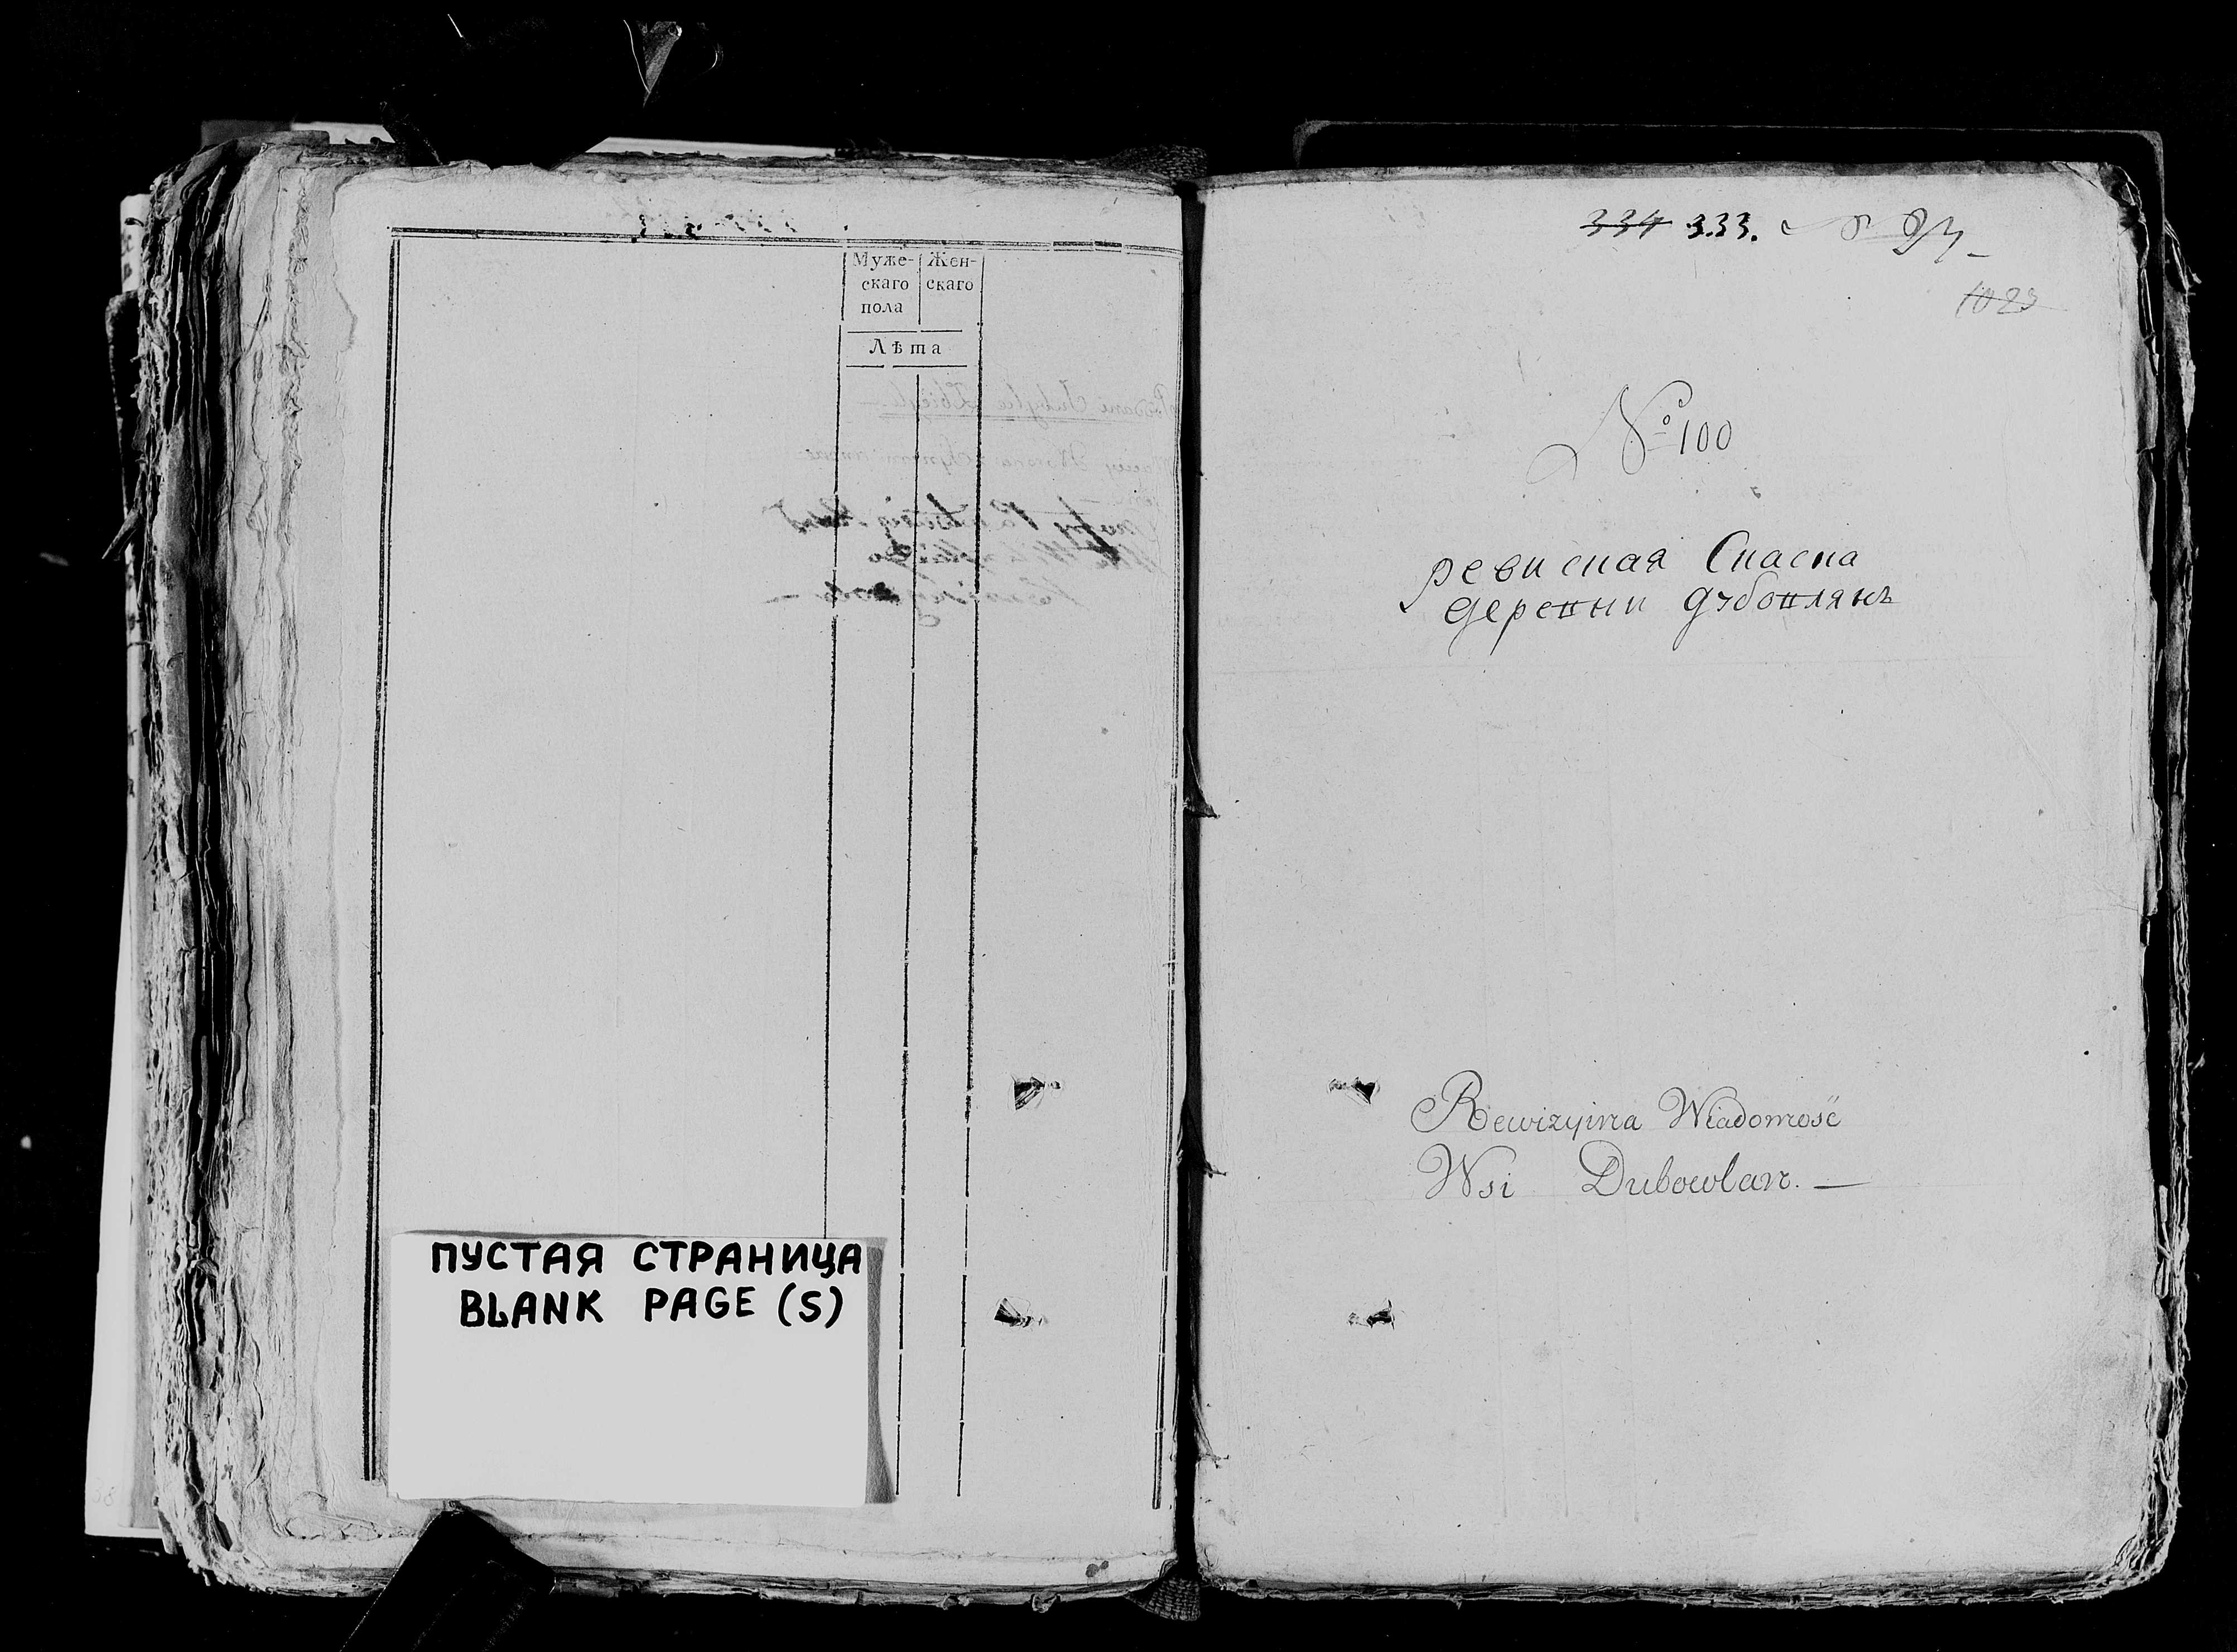 Муже-
скаго
пола
Жен-
скаго
Лѣта
ПУСТАЯ СТРАНИЦА
BLANK PAGE (S)
334 333.
1023
№ 100
ревисная Скаска
деревни дубовлянъ
Rewizyina Wiadomość
Wsi Dubowlan. —